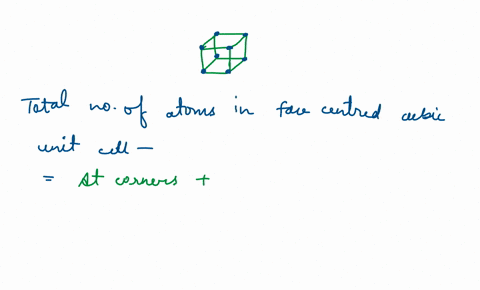 Total no. of atoms in face centred cubic
unit cell —
= At corners +